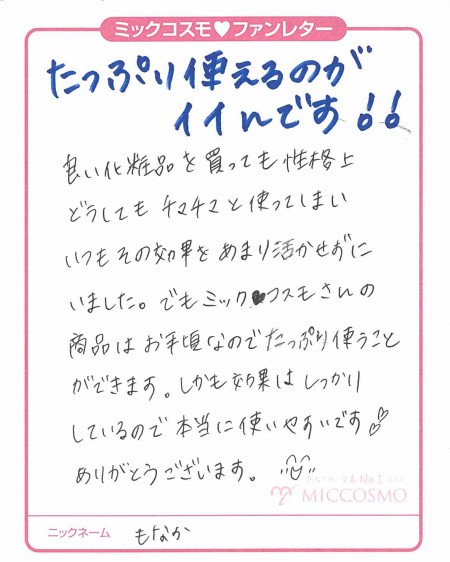 ミックコスモ♥ファンレター
たっぷり使えるのが
イイんです!!
良い化粧品を買っても性格上
どうしてもチマチマと使ってしまい
いつもその効果をあまり活かせずに
いました。でもミック♥コスモさんの
商品はお手頃なのでたっぷり使うこと
ができます。しかも効果はしっかり
しているので本当に使いやすいです
ありがとうございます。
MICCOSMO
ニックネーム もなか